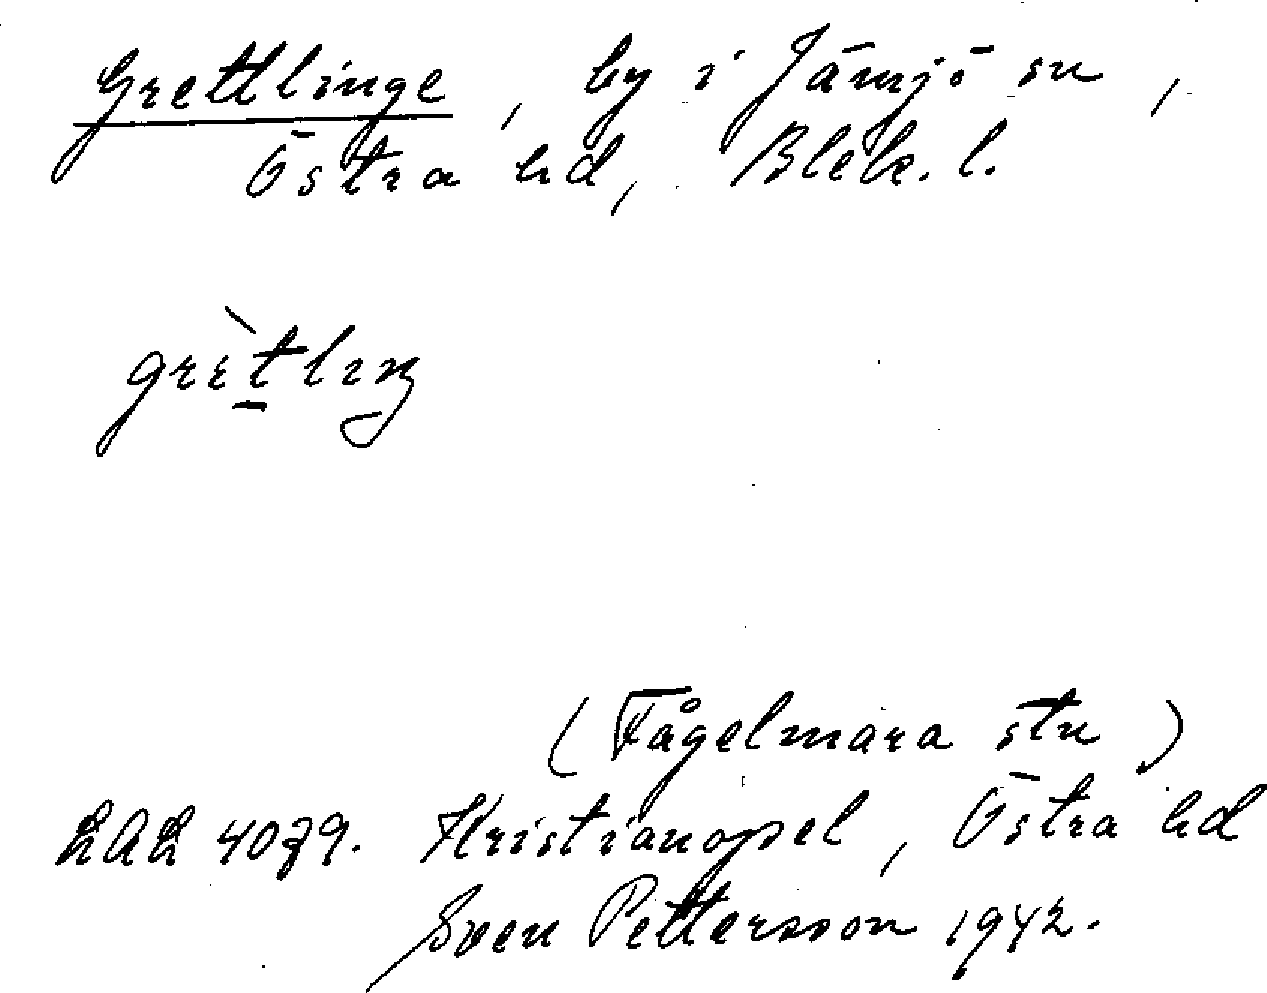 Grettlinge, by i Jämjö sn,
Östra hd, Blek. l.
grètlıŋ
(Fågelmara stn)
LAL 4079. Kristianopel, Östra hd
Sven Pettersson 1942.